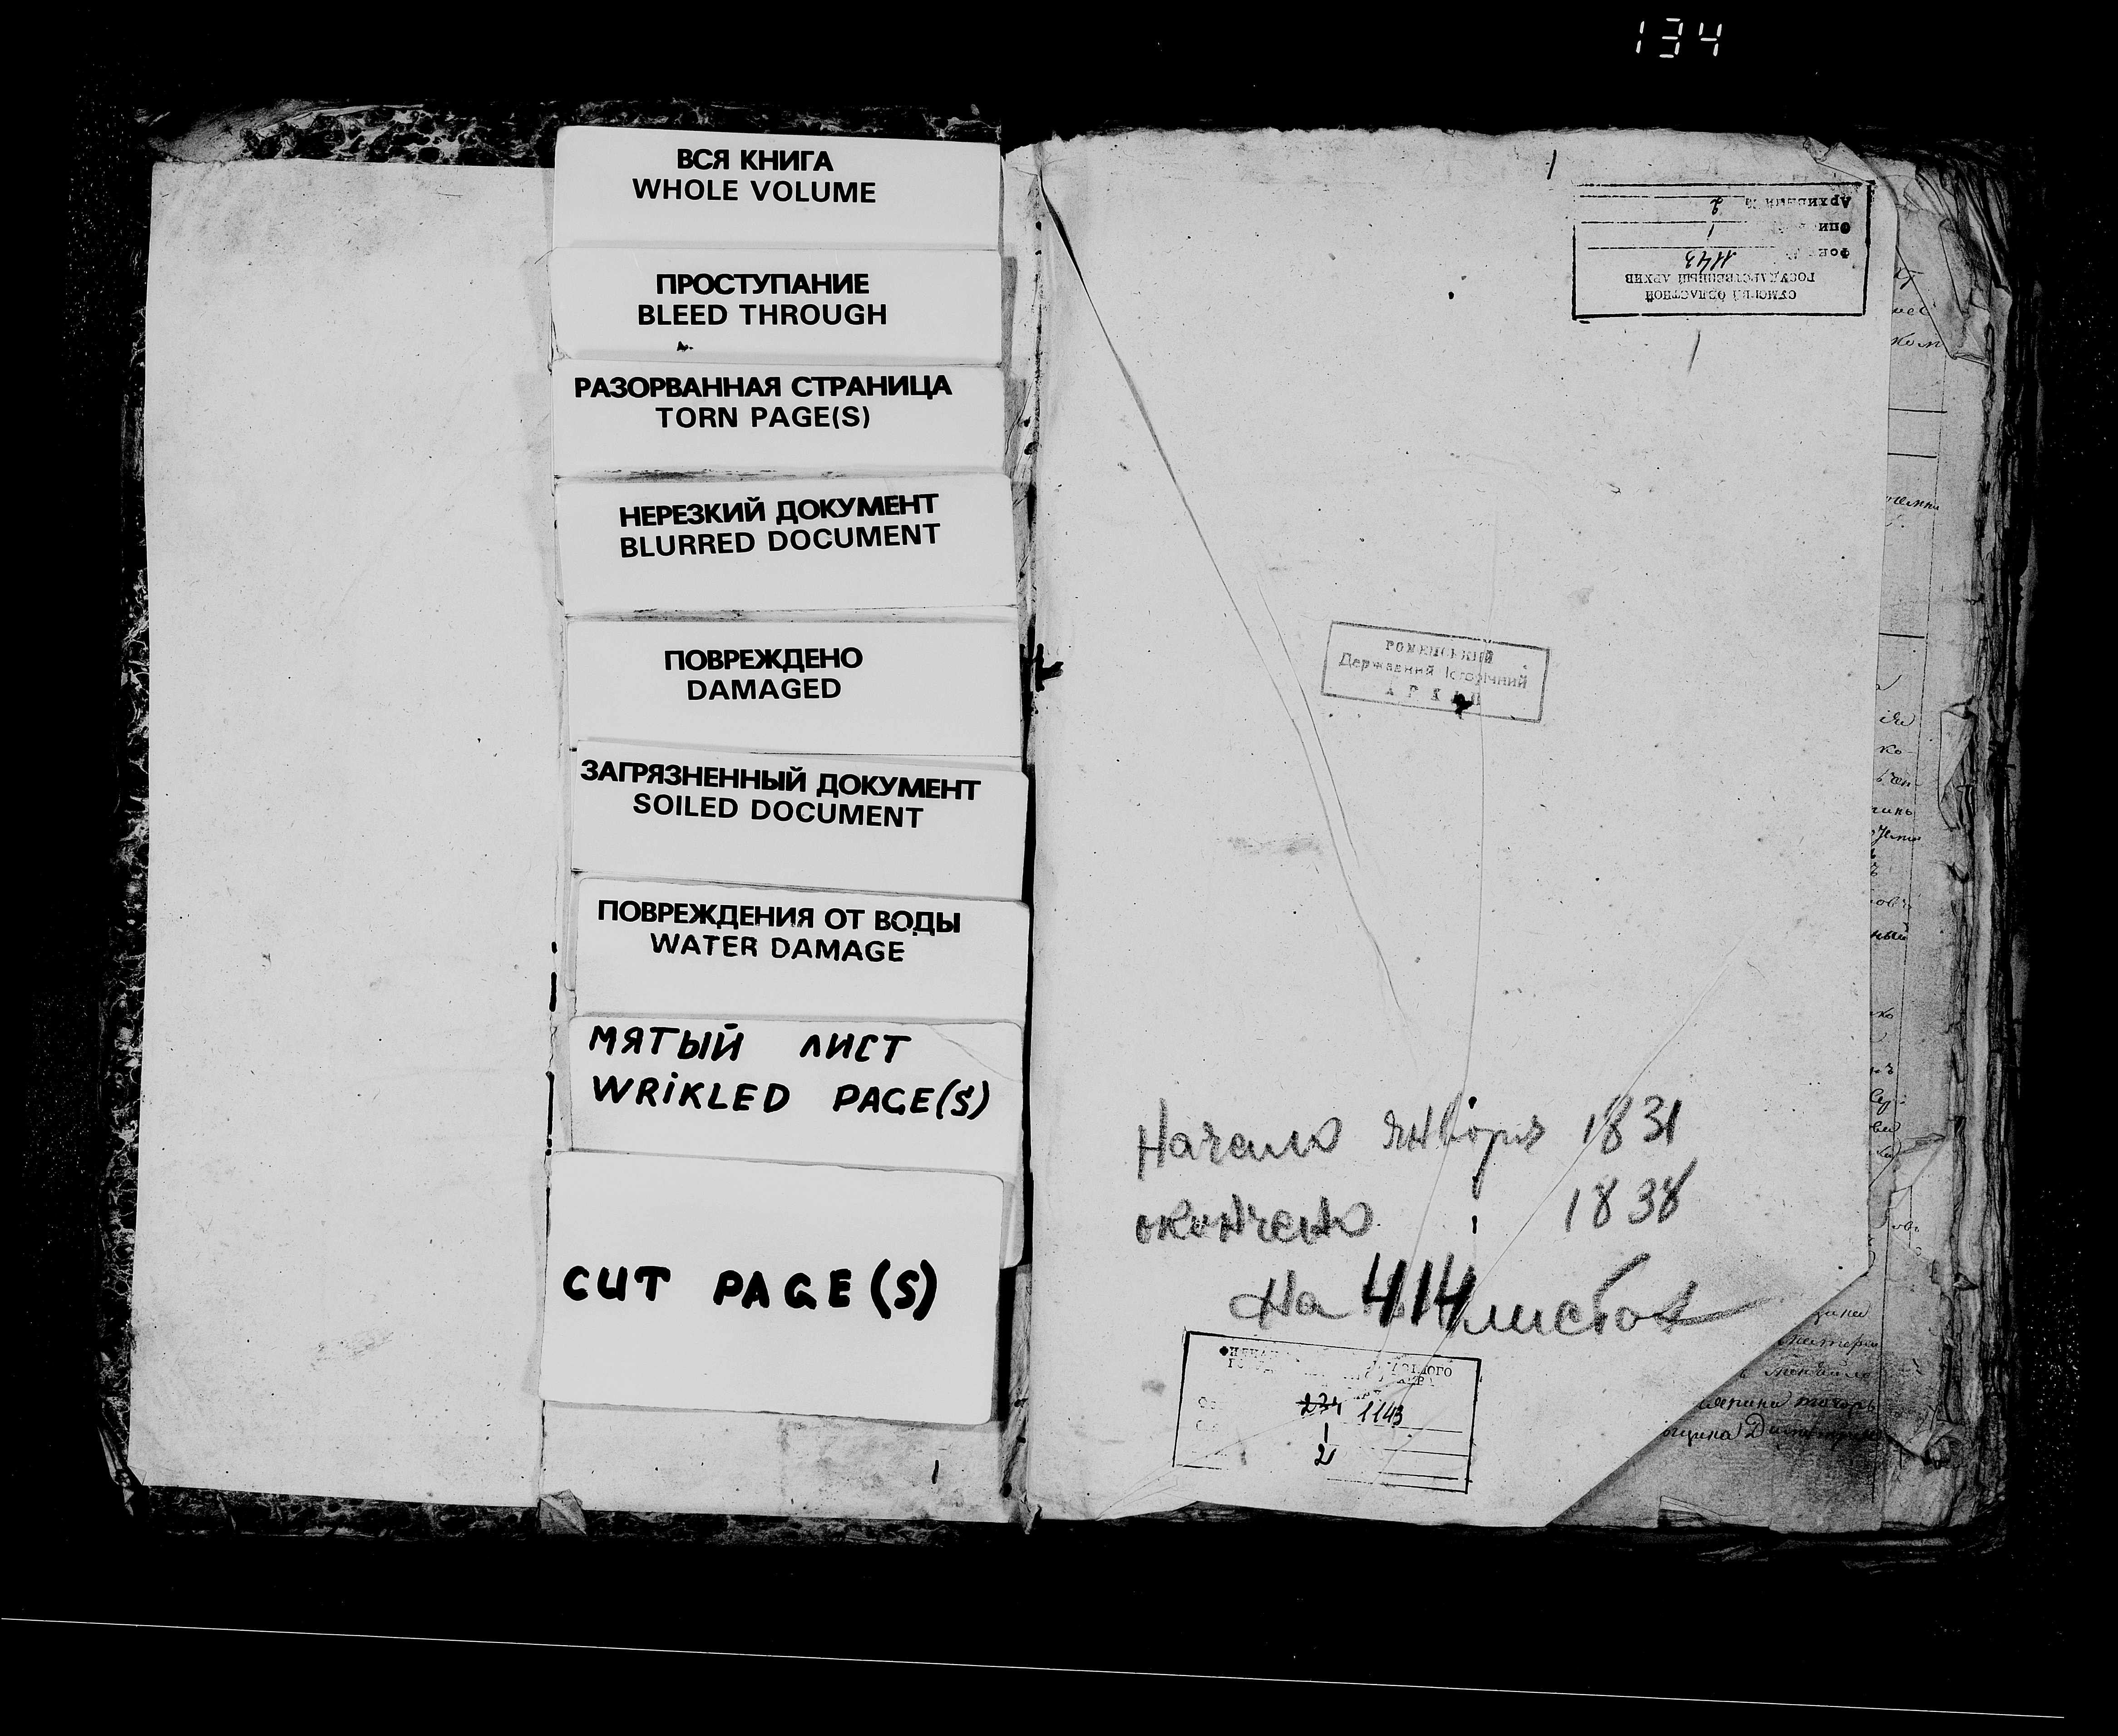 134
ВСЯ КНИГА
WHOLE VOLUME
ПРОСТУПАНИЕ
BLEED THROUGH
РАЗОРВАННАЯ СТРАНИЦА
TORN PAGE(S)
НЕРЕЗКИЙ ДОКУМЕНТ
BLURRED DOCUMENT
ПОВРЕЖДЕНО
DAMAGED
ЗАГРЯЗНЕННЫЙ ДОКУМЕНТ
SOILED DOCUMENT
ПОВРЕЖДЕНИЯ ОТ ВОДЫ
WATER DAMAGE
МЯТЫЙ ЛИСТ
WRiKLED PAGE(S)
CUT PAGE(S)
1
1
ОБЛАСТНОЙ
ГОСУДАРСТВЕННЫЙ АРХИВ
1143
1
Архивный № 2
РОМЕНСЬКИЙ
Державний Історічний
АРХІВ
Начало января 1831
окончено 1838
На 414 листов
1143
1
2